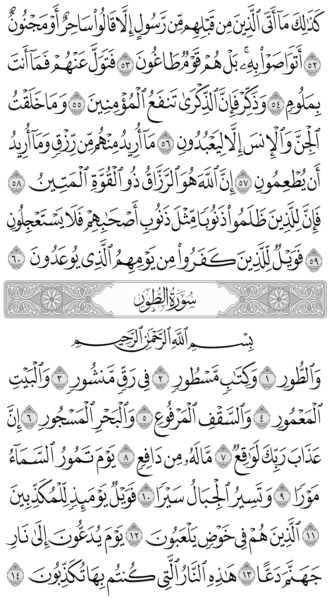 كَذَٰلِكَ مَآ أَتَى ٱلَّذِينَ مِن قَبۡلِهِم مِّن رَّسُولٍ إِلَّا قَالُواْ سَاحِرٌ أَوۡ مَجۡنُونٌ
٥٢ أَتَوَاصَوۡاْ بِهِۦۚ بَلۡ هُمۡ قَوۡمٞ طَاغُونَ ٥٣ فَتَوَلَّ عَنۡهُمۡ فَمَآ أَنتَ
بِمَلُومٖ ٥٤ وَذَكِّرۡ فَإِنَّ ٱلذِّكۡرَىٰ تَنفَعُ ٱلۡمُؤۡمِنِينَ ٥٥ وَمَا خَلَقۡتُ
ٱلۡجِنَّ وَٱلۡإِنسَ إِلَّا لِيَعۡبُدُونِ ٥٦ مَآ أُرِيدُ مِنۡهُم مِّن رِّزۡقٖ وَمَآ أُرِيدُ
أَن يُطۡعِمُونِ ٥٧ إِنَّ ٱللَّهَ هُوَ ٱلرَّزَّاقُ ذُو ٱلۡقُوَّةِ ٱلۡمَتِينُ ٥٨
فَإِنَّ لِلَّذِينَ ظَلَمُواْ ذَنُوبٗا مِّثۡلَ ذَنُوبِ أَصۡحَٰبِهِمۡ فَلَا يَسۡتَعۡجِلُونِ
٥٩ فَوَيۡلٞ لِّلَّذِينَ كَفَرُواْ مِن يَوۡمِهِمُ ٱلَّذِي يُوعَدُونَ ٦٠
سُورَةُ ٱلطُّورِ
بِسۡمِ ٱللَّهِ ٱلرَّحۡمَٰنِ ٱلرَّحِيمِ
وَٱلطُّورِ ١ وَكِتَٰبٖ مَّسۡطُورٖ ٢ فِي رَقّٖ مَّنشُورٖ ٣ وَٱلۡبَيۡتِ
ٱلۡمَعۡمُورِ ٤ وَٱلسَّقۡفِ ٱلۡمَرۡفُوعِ ٥ وَٱلۡبَحۡرِ ٱلۡمَسۡجُورِ ٦ إِنَّ
عَذَابَ رَبِّكَ لَوَٰقِعٞ ٧ مَّا لَهُۥ مِن دَافِعٖ ٨ يَوۡمَ تَمُورُ ٱلسَّمَآءُ
مَوۡرٗا ٩ وَتَسِيرُ ٱلۡجِبَالُ سَيۡرٗا ١٠ فَوَيۡلٞ يَوۡمَئِذٖ لِّلۡمُكَذِّبِينَ
١١ ٱلَّذِينَ هُمۡ فِي خَوۡضٖ يَلۡعَبُونَ ١٢ يَوۡمَ يُدَعُّونَ إِلَىٰ نَارِ
جَهَنَّمَ دَعًّا ١٣ هَٰذِهِ ٱلنَّارُ ٱلَّتِي كُنتُم بِهَا تُكَذِّبُونَ ١٤